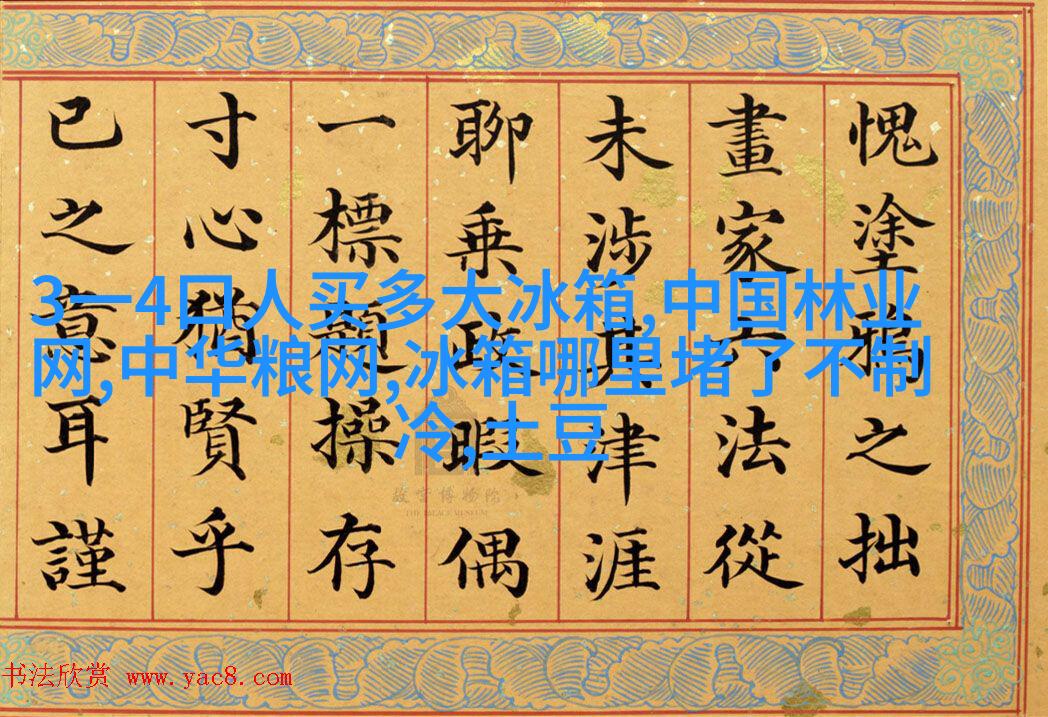 愧塗鴉之拙
畫家六法從
未涉其津涯
聊乘政暇偶
一標題操存
寸心猶賢乎
已之意耳謹
3一4口人买多大冰箱,中国林业
网,中华粮网,冰箱哪里堵了不制
冷,土豆
故宫博物院
THE PALACE MUSEUM
书法欣赏 www.yac8.com